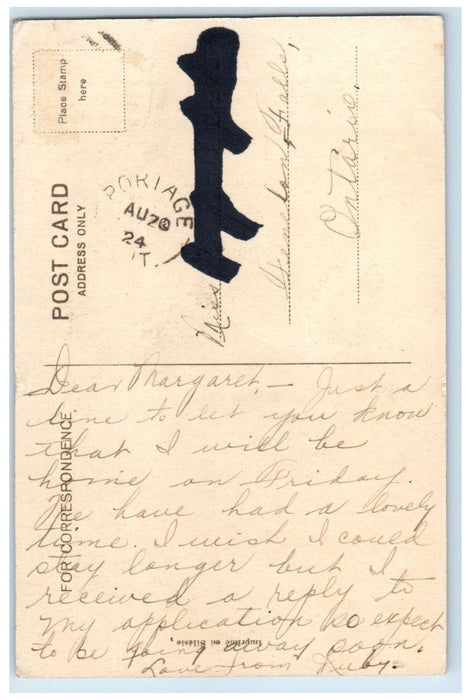 Place Stamp
here
POST CARD
ADDRESS ONLY
PORTAGE
AU 20
24
NT.
Miss
Fenelon Falls,
Ontario.
FOR CORRESPONDENCE
Dear Margaret, — Just a
line to let you know
that I will be
home on Friday.
We have had a lovely
time. I wish I could
stay longer but I
received a reply to
my application so expect
to be going away soon.
Love from Ruby.
Imprimé en Silésie,